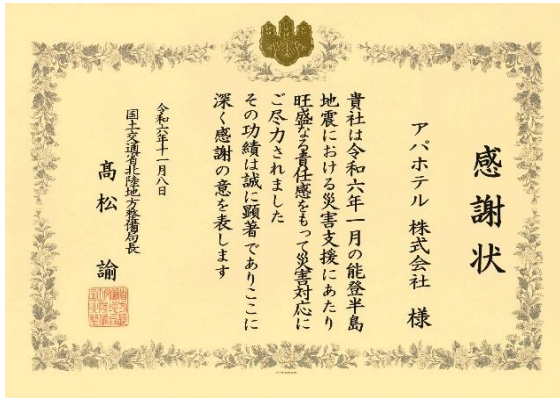 感謝状
アパホテル 株式会社 様
貴社は令和六年一月の能登半島
地震における災害支援にあたり
旺盛なる責任感をもって災害対応に
ご尽力されました
その功績は誠に顕著でありここに
深く感謝の意を表します
令和六年十一月八日
国土交通省北陸地方整備局長
髙松 諭